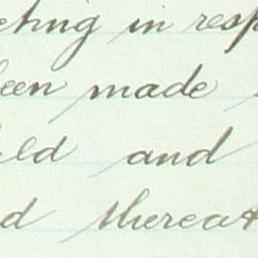 cting in resp
een made
eld and
d thereat